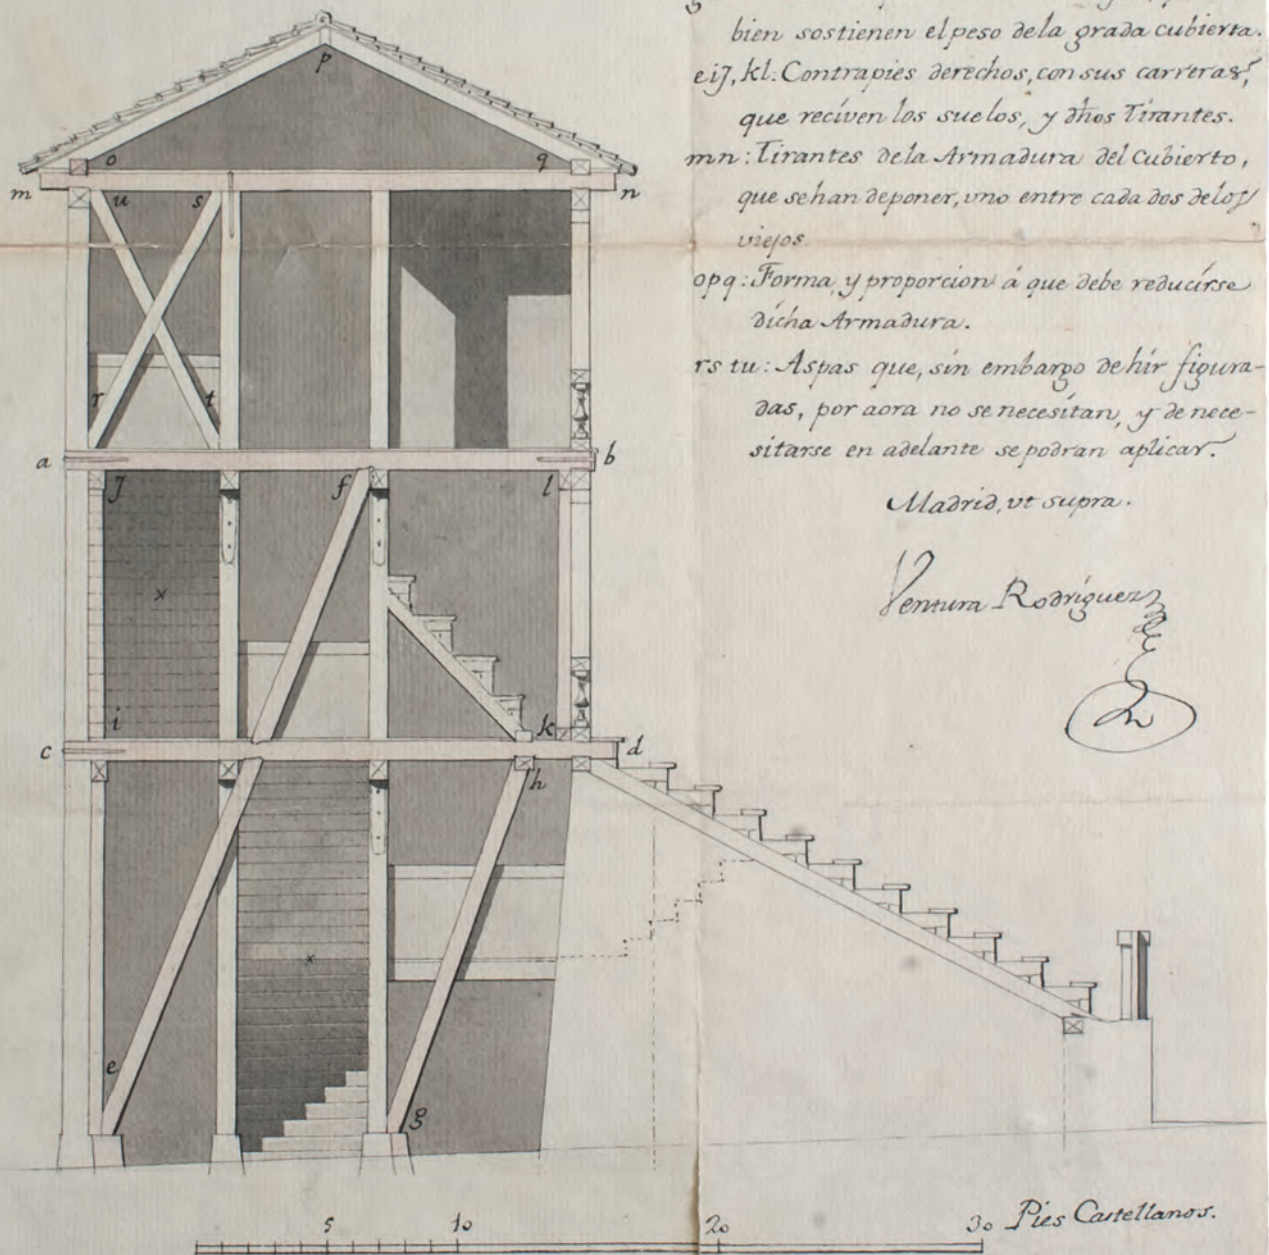 bien sostienen el peso dela grada cubierta.
eiJ, kl: Contrapies derechos, con sus carreras,
que reciven los suelos, y dhos Tirantes.
mn: Tirantes dela Armadura del Cubierto,
que sehan deponer, uno entre cada dos delos
viejos.
opq: Forma, y proporcion á que debe reducirse
dicha Armadura.
rs tu: Aspas que, sin embargo de hir figura-
das, por aora no se necesitan, y de nece-
sitarse en adelante se podran aplicar.
Madrid, ut supra.
Ventura Rodríguez
p
o q
m n
u s
r t
a b
J f l
x
i k
c d
h
x
e g
5 10 20 30 Pies Castellanos.